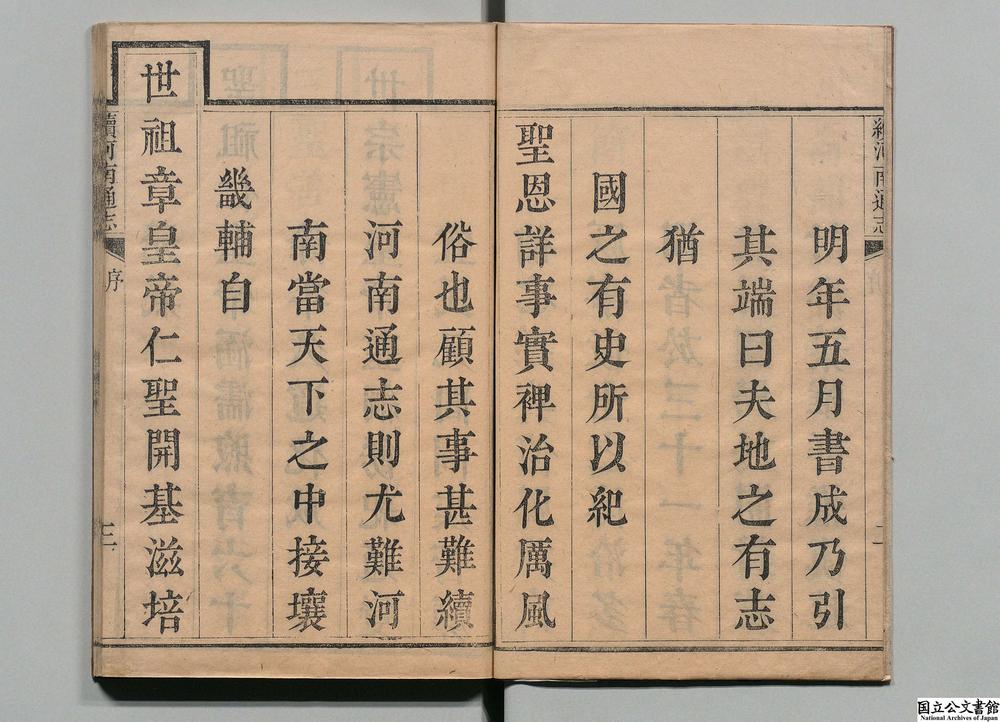 續河南通志
序
二
明年五月書成乃引
其端曰夫地之有志
猶
國之有史所以紀
聖恩詳事實裨治化厲風
俗也顧其事甚難續
河南通志則尤難河
南當天下之中接壤
畿輔自
世祖章皇帝仁聖開基滋培
續河南通志
序
三
国立公文書館
National Archives of Japan